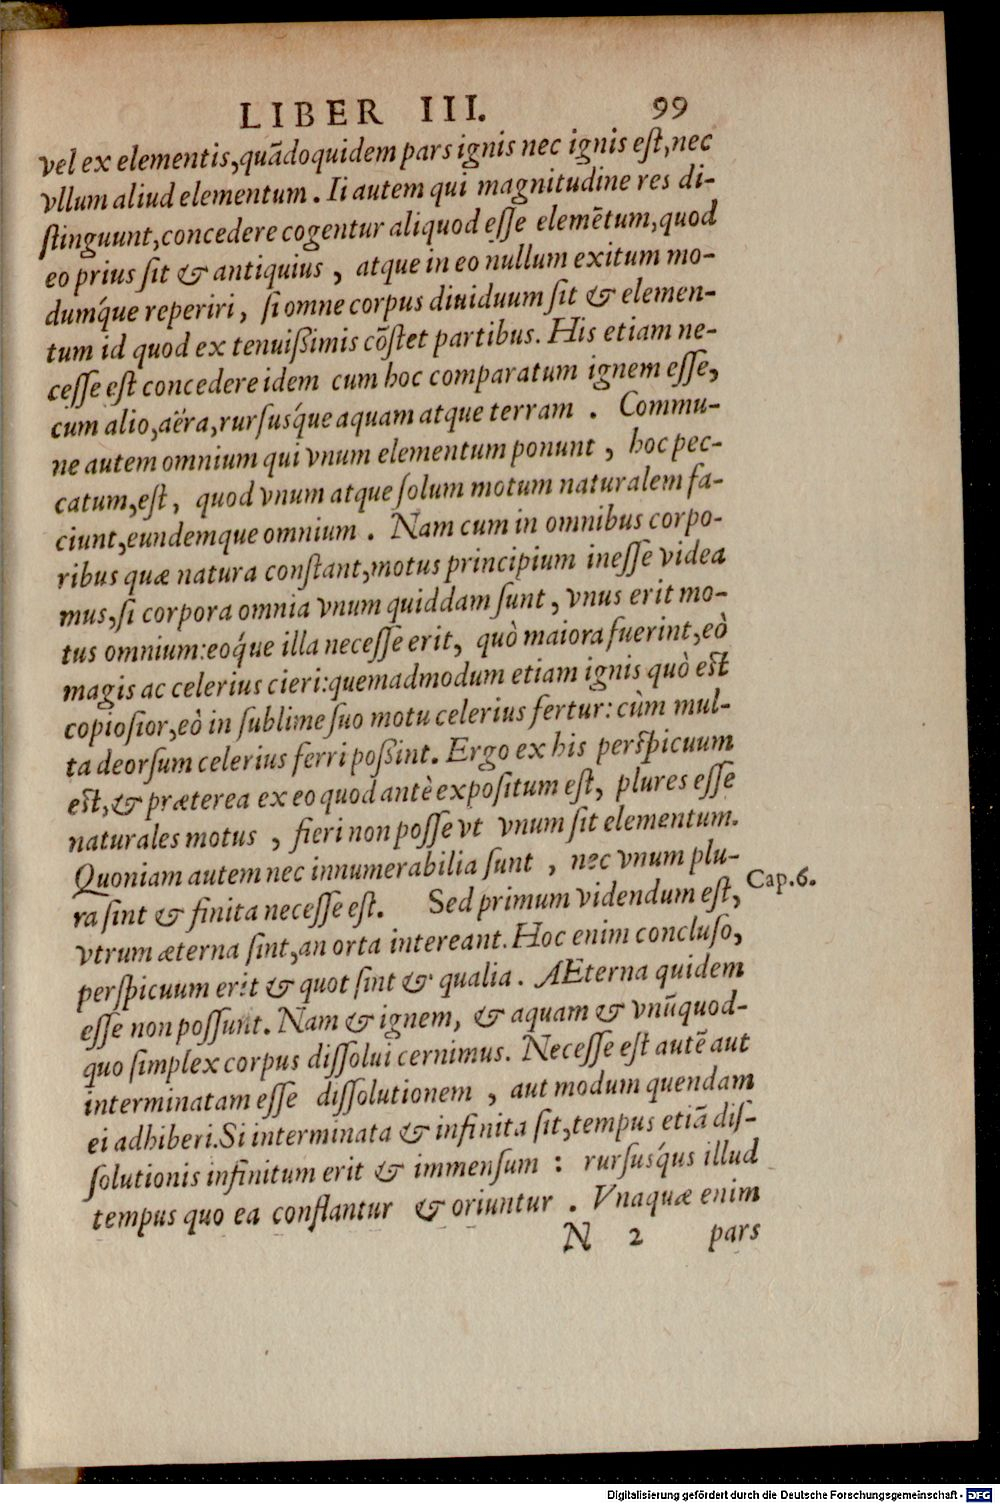 LIBER III. 99
vel ex elementis, quãdoquidem pars ignis nec ignis est, nec
vllum aliud elementum. Ii autem qui magnitudine res di-
stinguunt, concedere cogentur aliquod esse elemẽtum, quod
eo prius sit & antiquius, atque in eo nullum exitum mo-
dumq́ue reperiri, si omne corpus diuiduum sit & elemen-
tum id quod ex tenuißimis cõstet partibus. His etiam ne-
cesse est concedere idem cum hoc comparatum ignem esse,
cum alio, aëra, rursusq́ue aquam atque terram. Commu-
ne autem omnium qui vnum elementum ponunt, hoc pec-
catum, est, quod vnum atque solum motum naturalem fa-
ciunt, eundemque omnium. Nam cum in omnibus corpo-
ribus quæ natura constant, motus principium inesse videa
mus, si corpora omnia vnum quiddam sunt, vnus erit mo-
tus omnium: eoq́ue illa necesse erit, quò maiora fuerint, eò
magis ac celerius cieri: quemadmodum etiam ignis quò est
copiosior, eò in sublime suo motu celerius fertur: cùm mul-
ta deorsum celerius ferri poßint. Ergo ex his perspicuum
est, & præterea ex eo quod antè expositum est, plures esse
naturales motus, fieri non posse vt vnum sit elementum.
Quoniam autem nec innumerabilia sunt, nec vnum plu-
ra sint & finita necesse est. Sed primum videndum est,
Cap. 6.
vtrum æterna sint, an orta intereant. Hoc enim concluso,
perspicuum erit & quot sint & qualia. AEterna quidem
esse non possunt. Nam & ignem, & aquam & vnũquod-
quo simplex corpus dissolui cernimus. Necesse est autẽ aut
interminatam esse dissolutionem, aut modum quendam
ei adhiberi. Si interminata & infinita sit, tempus etiã dis-
solutionis infinitum erit & immensum: rursusq́us illud
tempus quo ea conflantur & oriuntur. Vnaquæ enim
N 2 pars
Digitalisierung gefördert durch die Deutsche Forschungsgemeinschaft - DFG